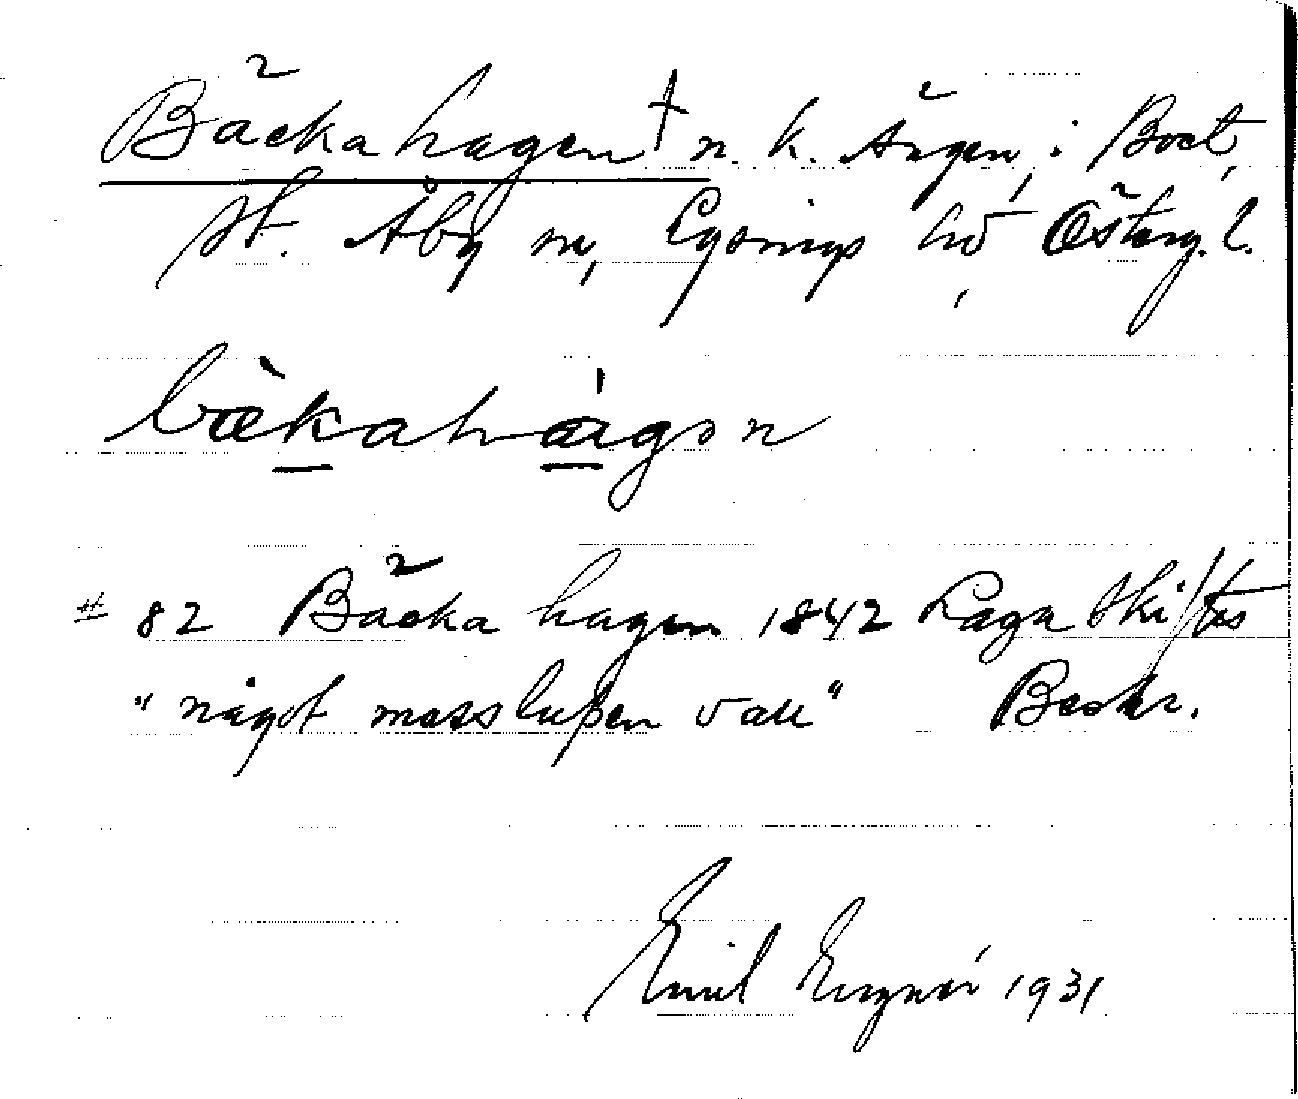 Bäckahagen † n. k. Ängen, i Boet,
St. Åby sn, Lysings hd Österg. l.
bækahagən
# 82 Bäcka hagen 1842 Laga Skiftes
"något masslupen vall" Beskr.
Emil 1931